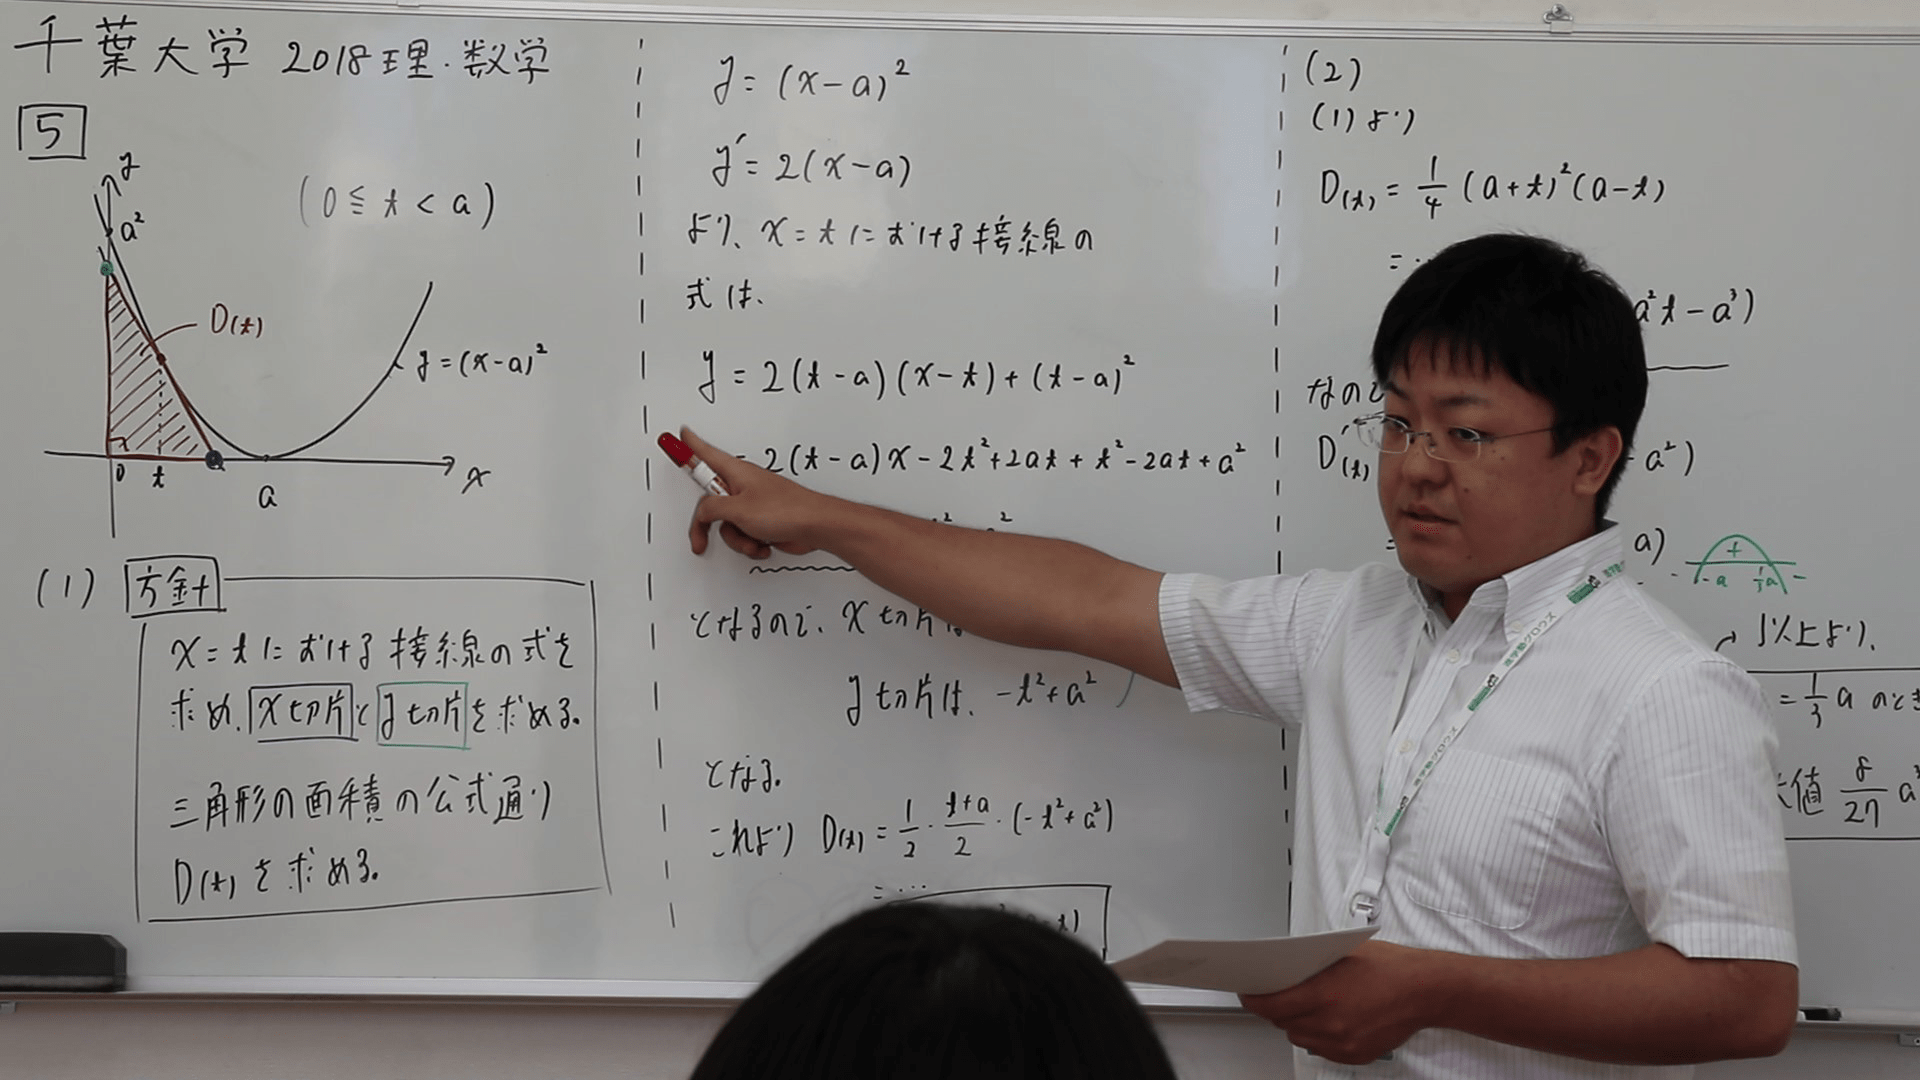 千葉大学 2018理・数学
5
y
a²
(0≦t<a)
D(t)
y=(x-a)²
0 t a x
(1) 方針
x=tにおける接線の式を
求め、x切片とy切片を求める。
三角形の面積の公式通り
D(t)を求める。
y=(x-a)²
y'=2(x-a)
より、x=tにおける接線の
式は、
y=2(t-a)(x-t)+(t-a)²
=2(t-a)x-2t²+2at+t²-2at+a²
となるので、x切片は
y切片は、-t²+a²
となる。
これより D(t)=1/2・(t+a)/2・(-t²+a²)
=…
(2)
(1)より
D(t)=1/4(a+t)²(a-t)
=…
a²t-a³)
なので
D'(t)
a²)
=
a)
+
- -a 1/3a -
以上より、
=1/3 a のとき
大値 8/27 a³
進学塾グロウズ